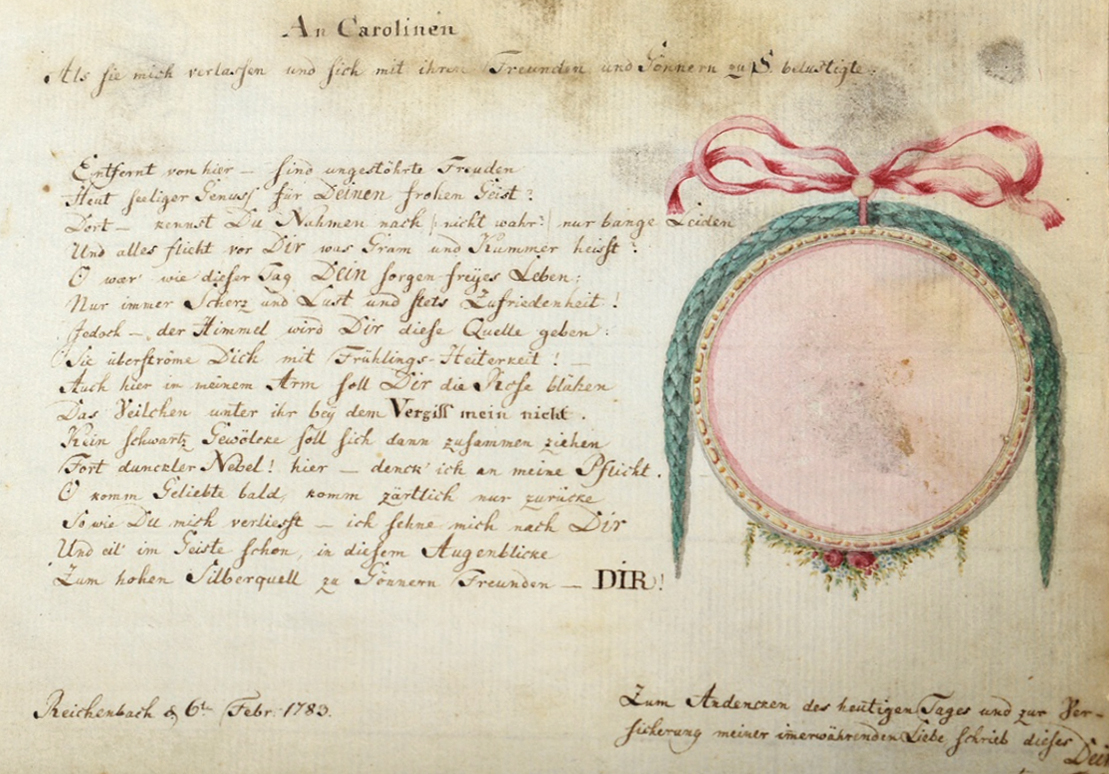 An Carolinen
Als sie mich verlassen und sich mit ihren Freunden und Gönnern zu S. belustigte.
Entfernt von hier — sind ungestöhrte Freuden
Heut seeliger Genuss für Deinen frohen Geist?
Dort — kennst Du Nahmen nach /: nicht wahr? :/ nur bange Leiden
Und alles flieht vor Dir was Gram und Kummer heisst?
O wär' wie dieser Tag Dein sorgen freyes Leben;
Nur immer Scherz und Lust und stets Zufriedenheit!
Jedoch — der Himmel wird Dir diese Quelle geben:
Sie überströme Dich mit Frühlings-Heiterkeit! —
Auch hier in meinem Arm soll Dir die Rose blühen
Das Veilchen unter ihr bey dem Vergiss mein nicht.
Kein schwartz Gewölcke soll sich dann zusammen ziehen
Fort dunckler Nebel! hier — denck' ich an meine Pflicht.
O komm Geliebte bald, komm zärtlich nur zurücke
So wie Du mich verliesst — ich sehne mich nach Dir
Und eil' im Geiste schon, in diesem Augenblicke
Zum hohen Silberquell zu Gönnern Freunden — DIR!
Reichenbach d. 6ten Febr. 1783.
Zum Andencken des heutigen Tages und zur Ver-
sicherung meiner imerwährenden Liebe schrieb dieses Dein